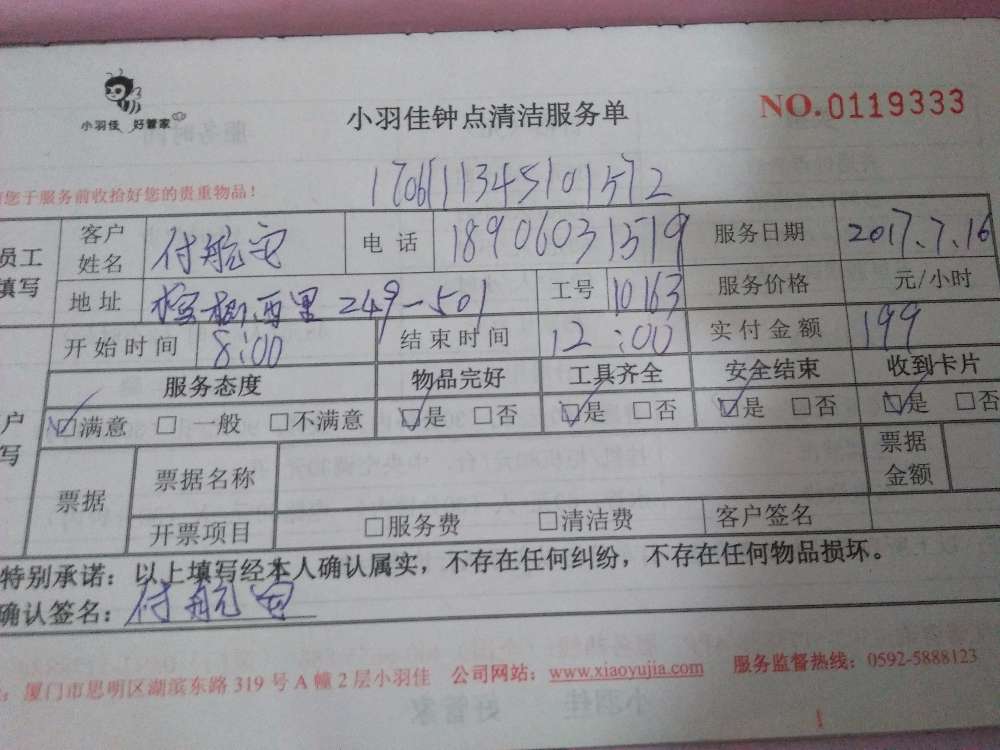 小羽佳 好管家
小羽佳钟点清洁服务单
NO.0119333
您于服务前收拾好您的贵重物品！
170611134510 1572
员工填写
客户姓名 付航 电话 18906031519 服务日期 2017.7.16
地址 西里249-501 工号 10163 服务价格 元/小时
开始时间 8:00 结束时间 12:00 实付金额 199
服务态度 物品完好 工具齐全 安全结束 收到卡片
☑满意 □一般 □不满意 ☑是 □否 ☑是 □否 ☑是 □否 ☑是 □否
票据 票据名称 票据金额
开票项目 □服务费 □清洁费 客户签名
特别承诺：以上填写经本人确认属实，不存在任何纠纷，不存在任何物品损坏。
确认签名：付航
厦门市思明区湖滨东路319号A幢2层小羽佳 公司网站：www.xiaoyujia.com 服务监督热线：0592-5888123
1